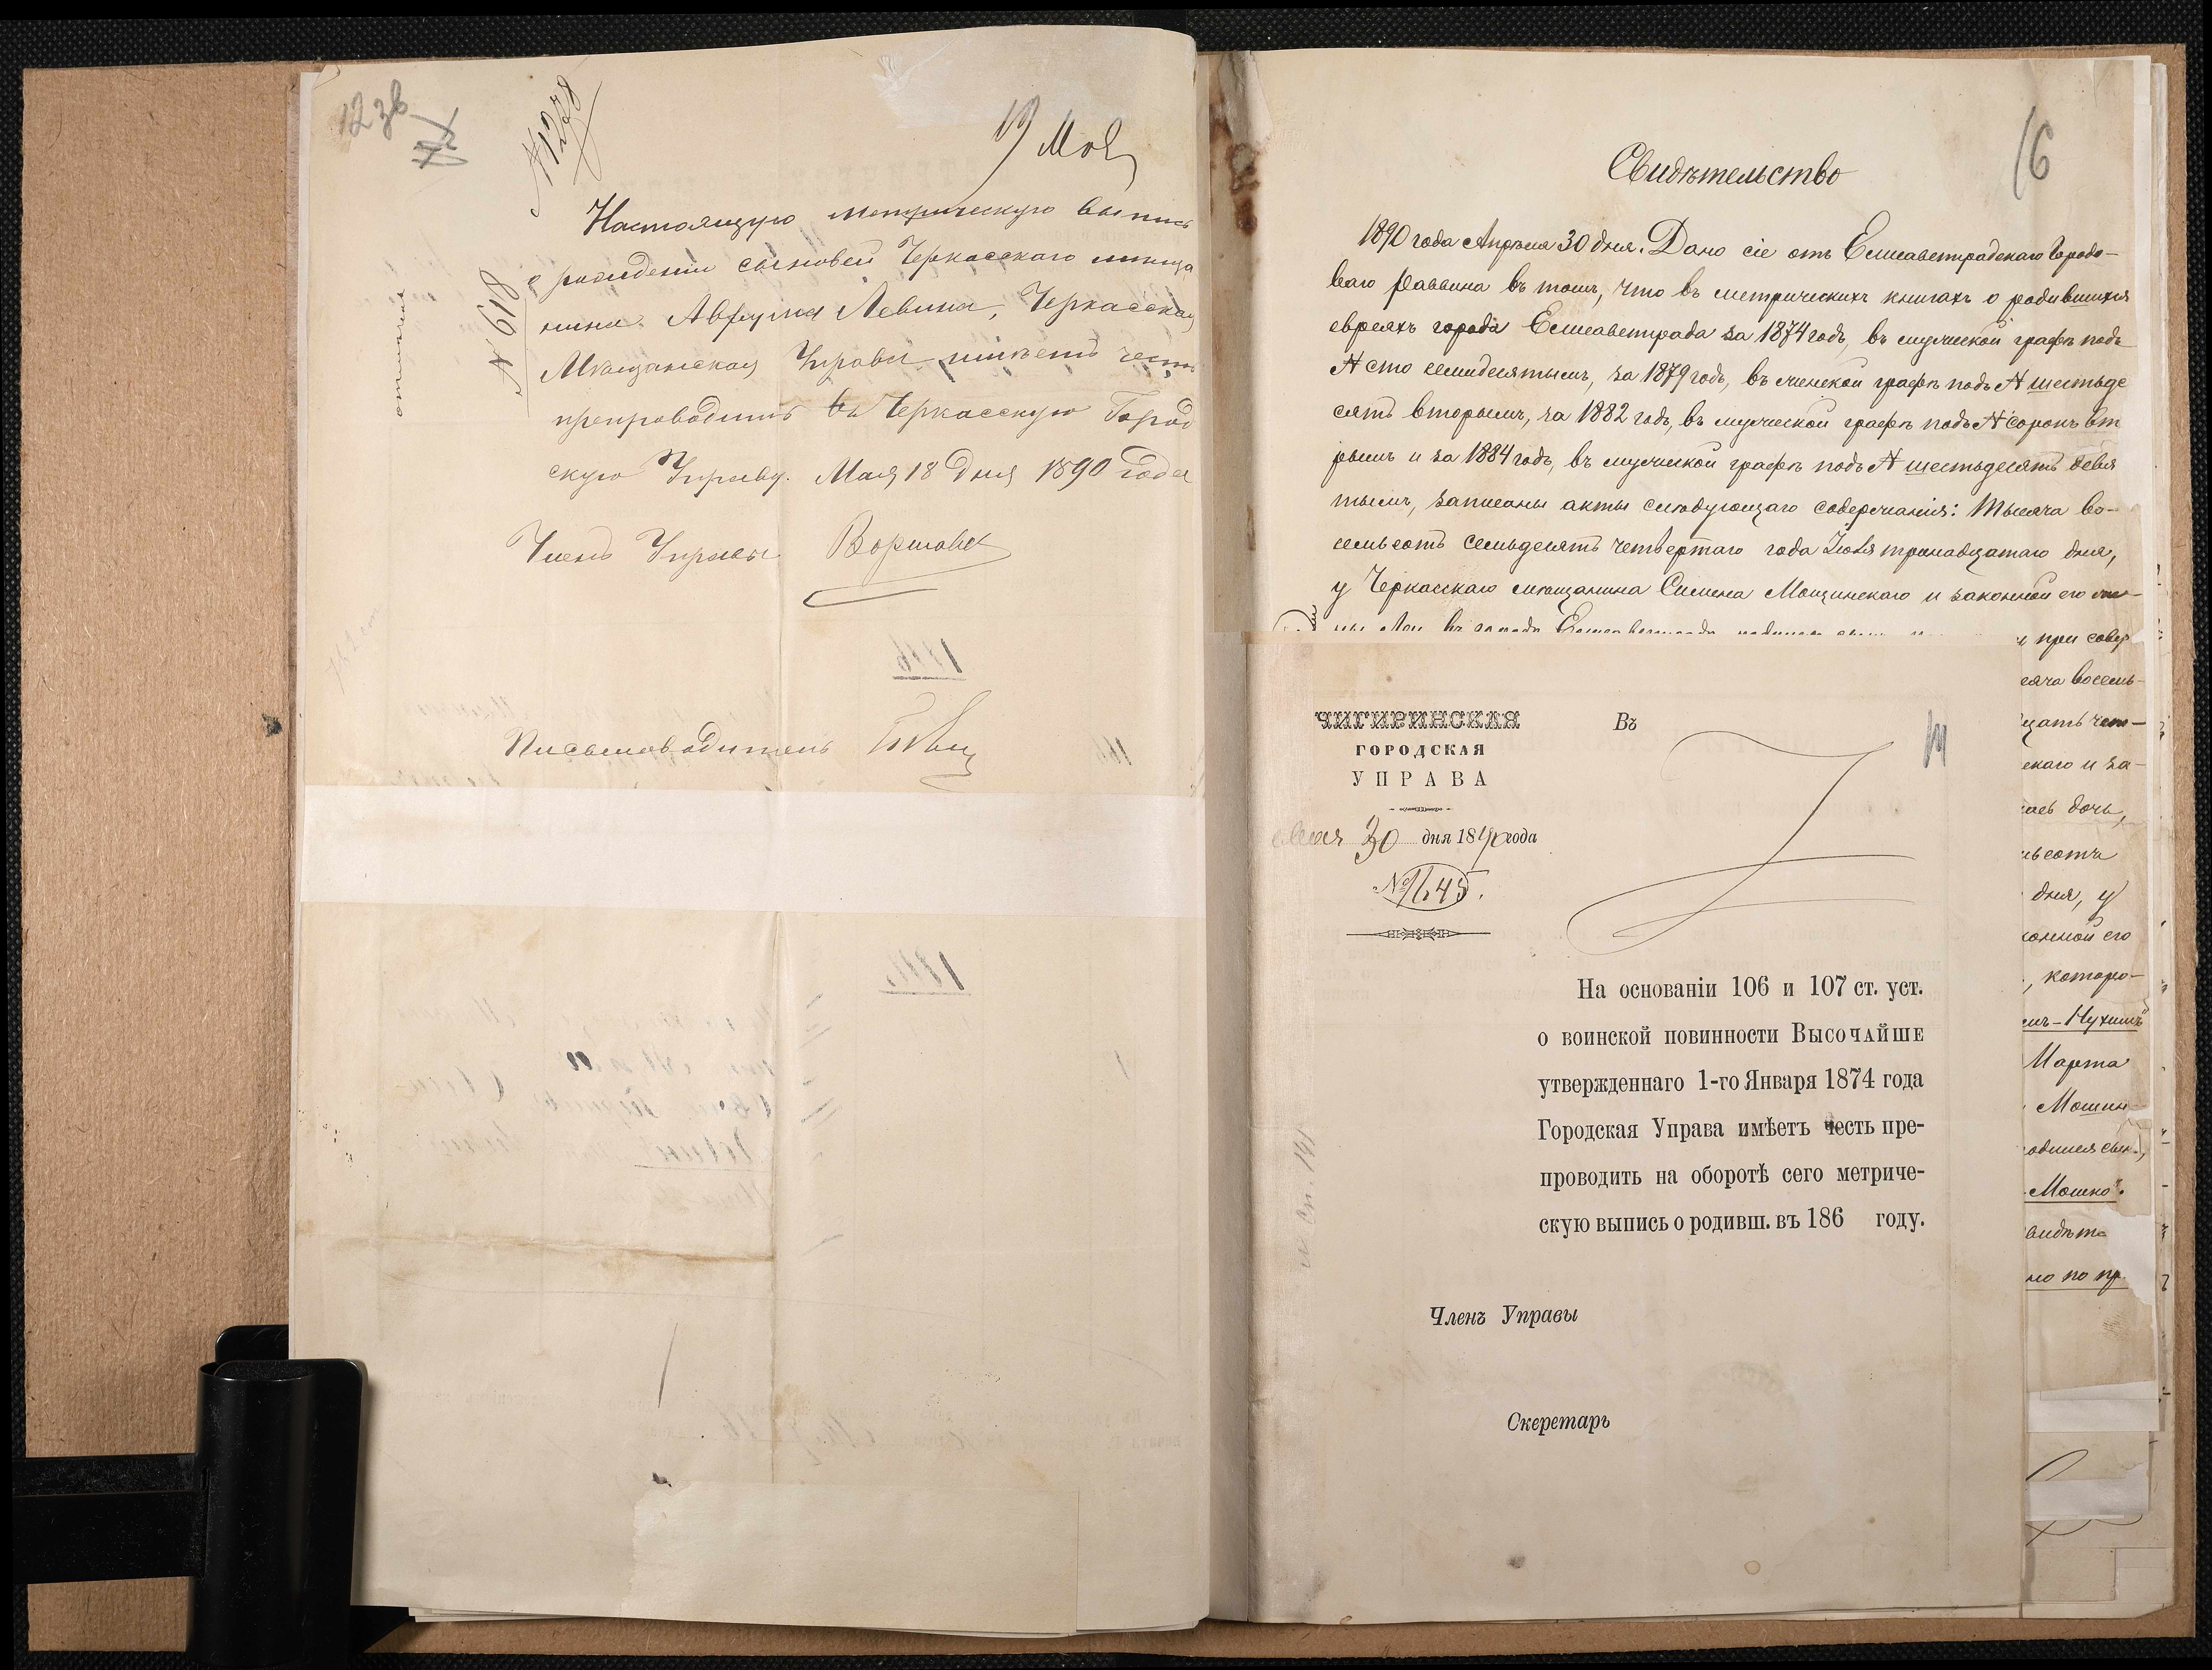 12 зв
№ 1278
19 Мая
№ 618
Настоящую метрическую выпись
о рождении сыновей Черкасскаго мѣща
нина Аврума Левина, Черкасская
Мѣщанская Управа имѣетъ честь
препроводить въ Черкасскую Город
скую Управу. Мая 18 дня 1890 года
Членъ Управы
Письмоводитель
16
Свидѣтельство
1890 года Апрѣля 30 дня. Дано сіе отъ Елисаветградскаго Городо-
ваго Раввина въ томъ, что въ метрическихъ книгахъ о родившихся
евреяхъ города Елисаветграда за 1874 годъ, въ мужской графѣ подъ
№ сто семидесятымъ, за 1879 годъ, въ женской графѣ подъ № шестьде
сятъ вторымъ, за 1882 годъ, въ мужской графѣ подъ № сорокъ вто
рымъ и за 1884 годъ, въ мужской графѣ подъ № шестьдесятъ девя
тымъ, записаны акты слѣдующаго содержанія: Тысяча во-
семьсотъ семьдесятъ четвертаго года Іюля тринадцатаго дня,
у Черкасскаго мѣщанина Симена Мощинскаго и законной его же-
ны Леи въ городѣ Елисаветградѣ родился сынъ
и при совер
сяча восемь-
цать чет-
скаго и за-
лась дочь,
мьсотъ
дня, у
конной его
, которо-
мъ-Нухимъ"
Марта
Мошин
родился сынъ,
-Мошко".
видѣте
но по пр
ЧИГИРИНСКАЯ
ГОРОДСКАЯ
УПРАВА
Мая 30 дня 1890 года
№ 1645.
Въ
14
На основаніи 106 и 107 ст. уст.
о воинской повинности ВЫСОЧАЙШЕ
утвержденнаго 1-го Января 1874 года
Городская Управа имѣетъ честь пре-
проводить на оборотѣ сего метриче-
скую выпись о родивш. въ 186 году.
Членъ Управы
Скеретарь